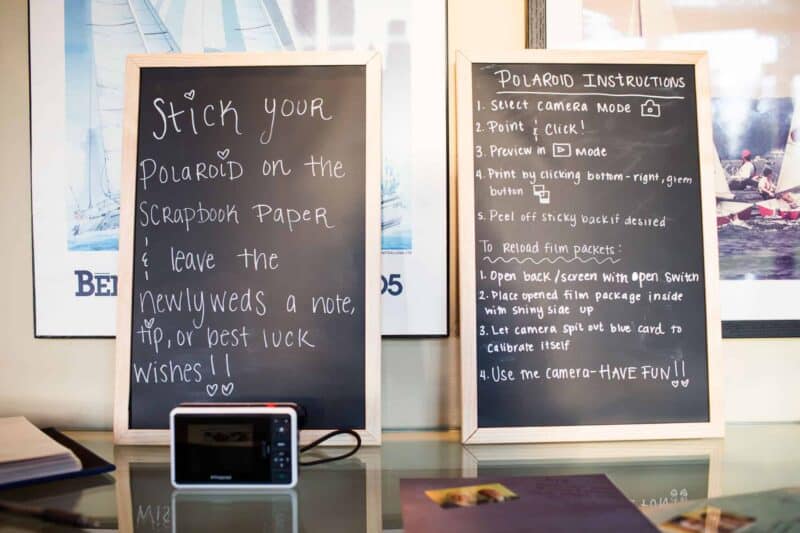 Stick your
Polaroid on the
Scrapbook Paper
& leave the
newlyweds a note,
tip, or best luck
wishes!!
Polaroid Instructions
1. Select camera mode
2. Point & Click!
3. Preview in mode
4. Print by clicking bottom-right, green
button
5. Peel off sticky back if desired
To Reload film packets:
1. Open back/screen with open switch
2. Place opened film package inside
with shiny side up
3. Let camera spit out blue card to
calibrate itself
4. Use the camera-HAVE FUN!!
Polaroid